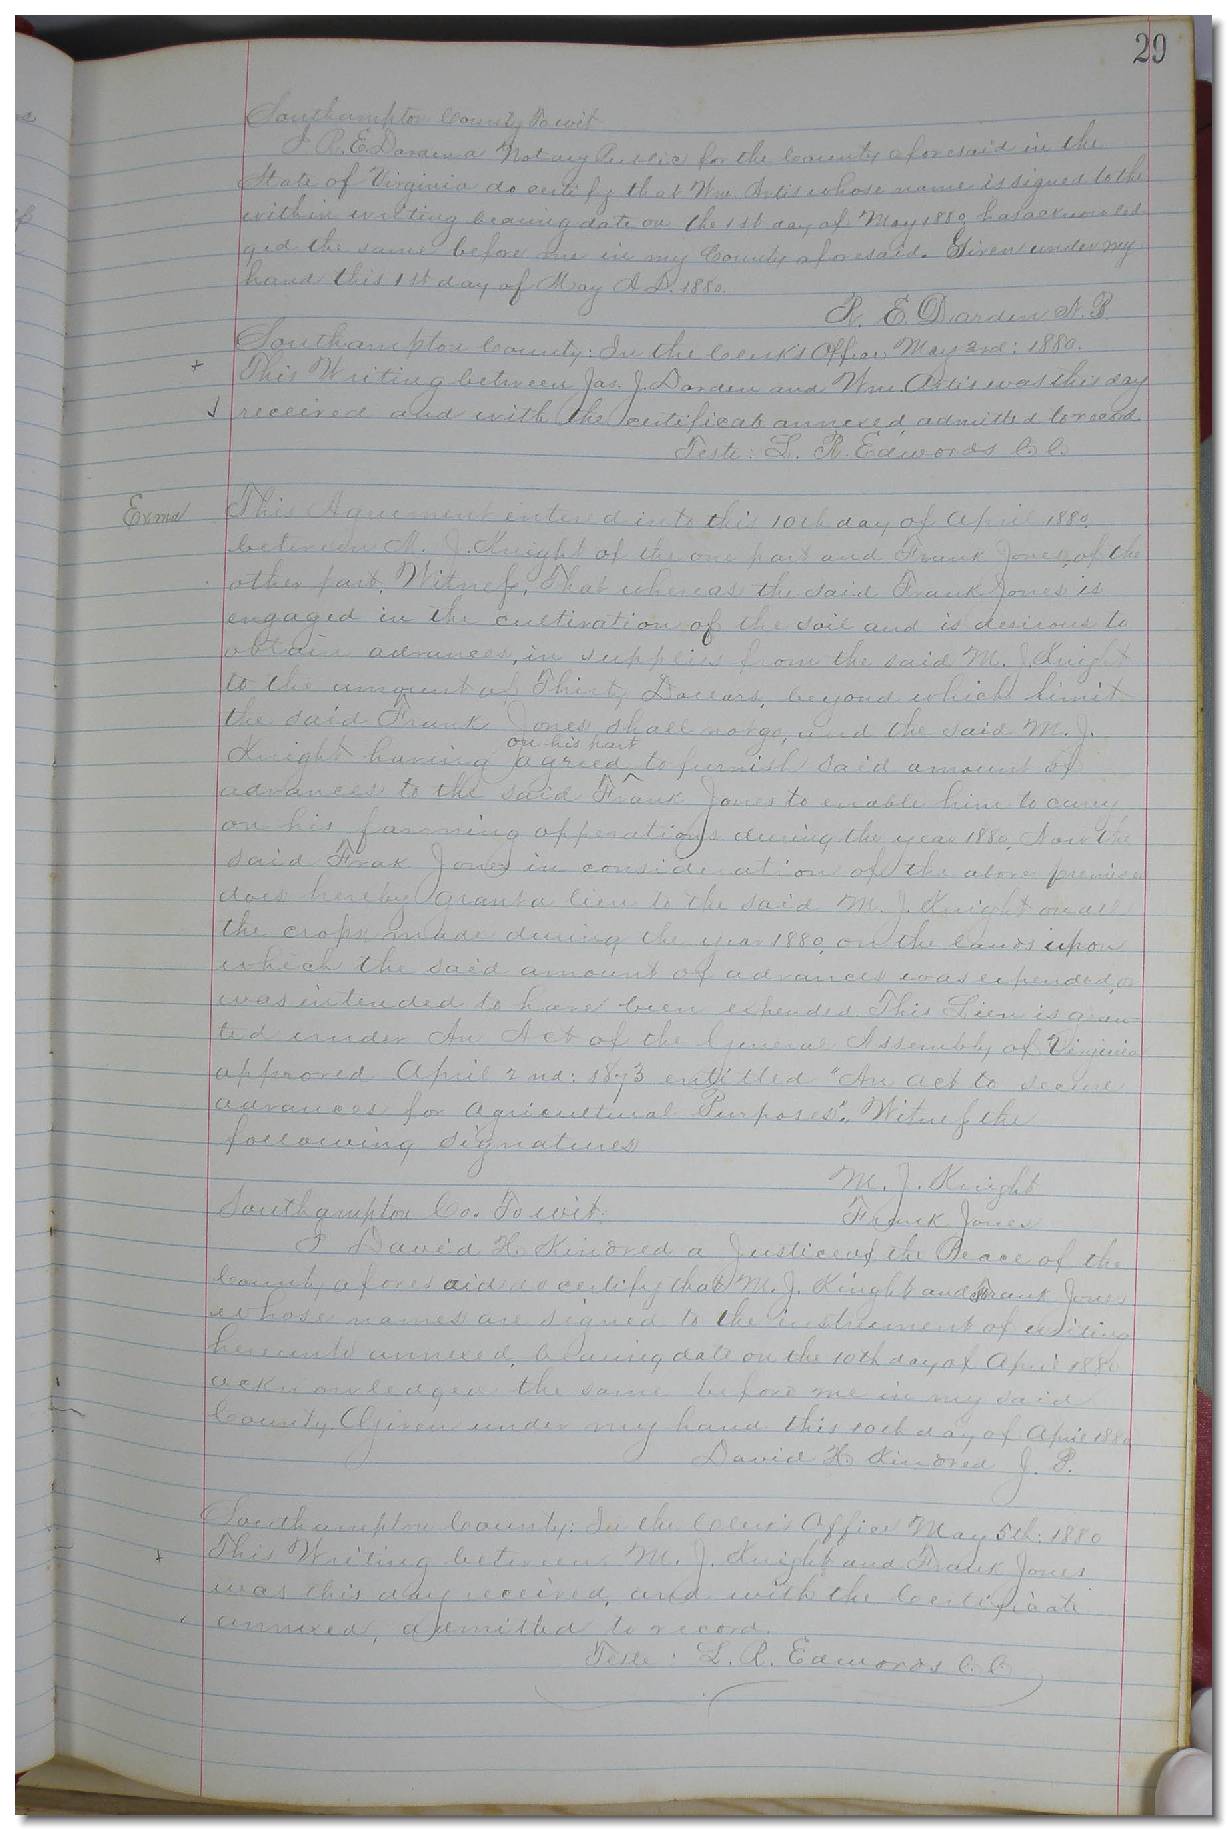 29
Southampton County Towit
I R. E. Darden a Notary Public for the County aforesaid in the
State of Virginia do certify that Wm. Artis whose name is signed to the
within writing bearing date on the 1st day of May 1880, has acknowled
ged the same before me in my County aforesaid. Given under my
hand this 1st day of May A.D. 1880.
R. E. Darden N. P.
Southampton County: In the Clerk's Office May 3rd: 1880.
This Writing between Jas. J. Darden and Wm. Artis was this day
received and with the certificate annexed admitted to record.
Teste: L. R. Edwards C. C.
Exmd
This Agreement entered into this 10th day of April 1880
between M. J. Knight of the one part and Frank Jones, of the
other part. Witness, That whereas the said Frank Jones is
engaged in the cultivation of the soil and is desirous to
obtain advances, in supplies from the said M. J. Knight
to the amount of Thirty Dollars, beyond which limit
the said Frank Jones shall not go, and the said M. J.
on his part
Knight having agreed to furnish said amount of
advances to the said Frank Jones to enable him to carry
on his farming opperations during the year 1880, Now the
said Frak Jones in consideration of the above premises
does hereby grant a lien to the said M. J. Knight on all
the crops made during the year 1880, on the lands upon
which the said amount of advances was expended, or
was intended to have been expended. This Lien is gran
ted under An Act of the General Assembly of Virginia
approved April 2nd: 1873 entitled "An act to secure
advances for Agricultural Purposes". Witness the
following signatures
M. J. Knight
Southampton Co. Towit.
Frank Jones
I David H Kindred a Justice of the Peace of the
County aforesaid do certify that M. J. Knight and Frank Jones
whose names are signed to the instrument of writing
hereunto annexed, bearing date on the 10th day of April 1880
acknowledged the same before me in my said
County Given under my hand this 10th day of April 1880
David H Kindred J. P.
Southampton County: In the Clerk's Office May 5th: 1880
This Writing between M. J. Knight and Frank Jones
was this day received, and with the Certificate
annexed, admitted to record.
Teste: L. R. Edwards C. C.